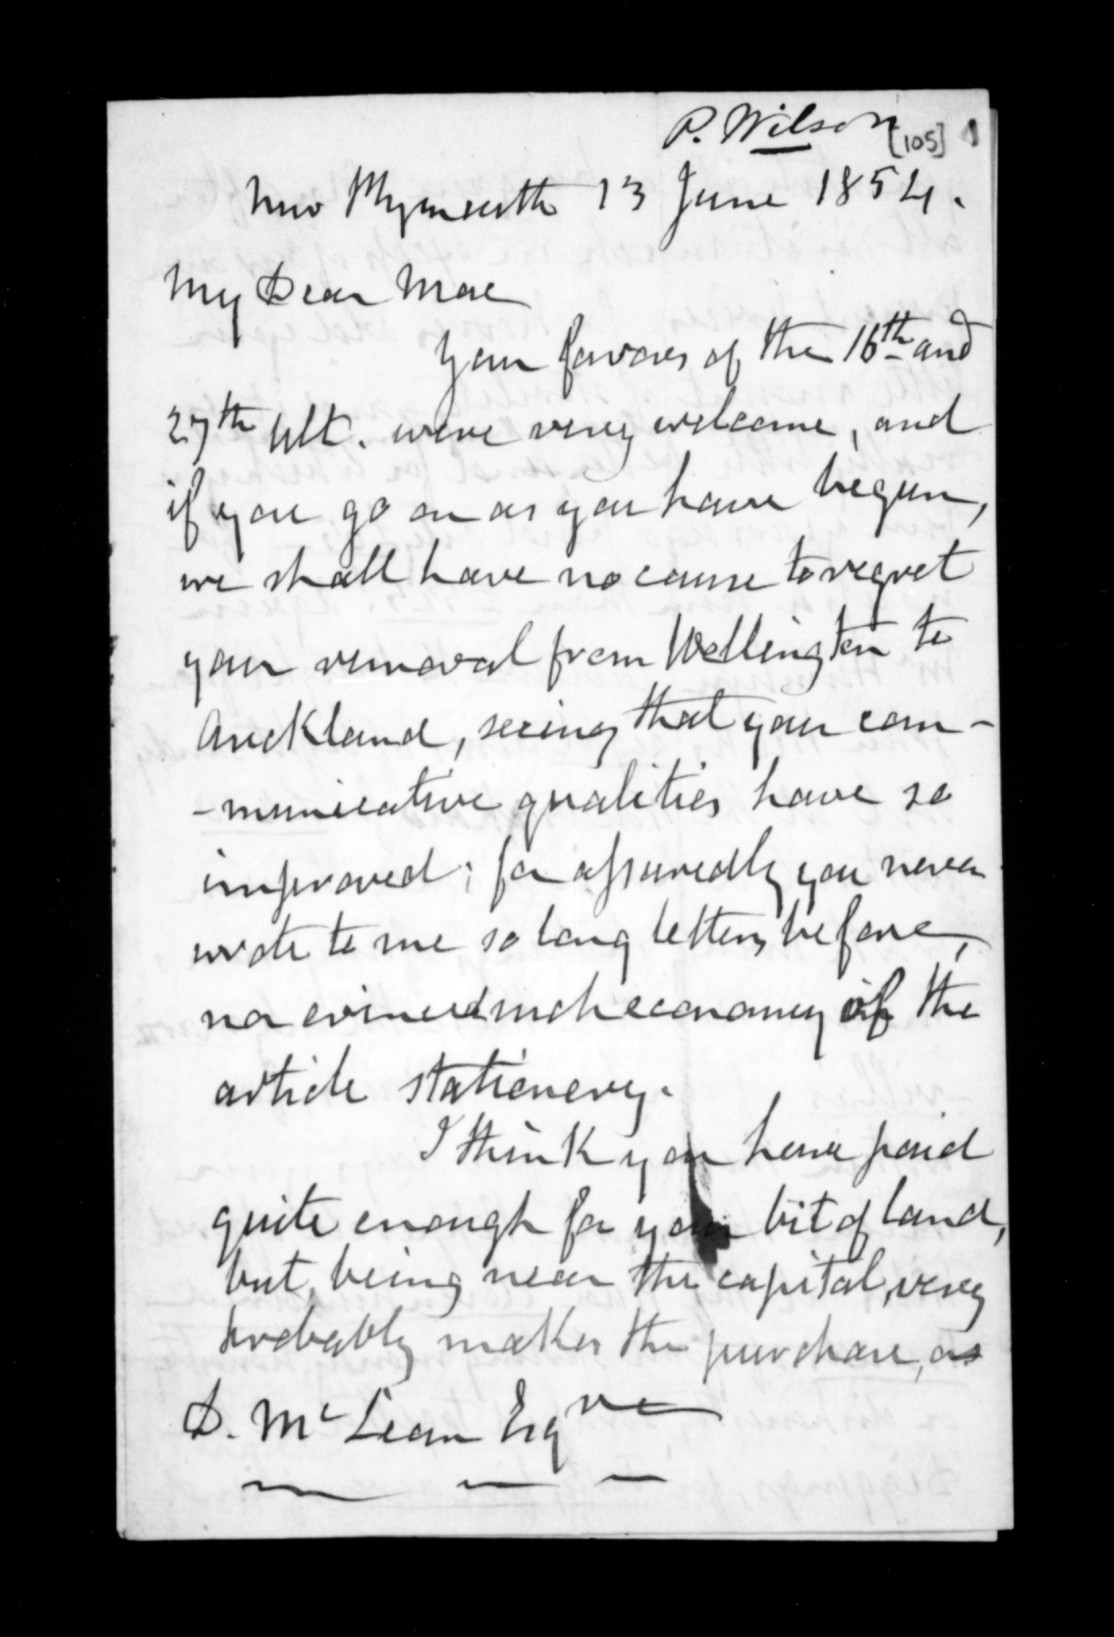 P. Wilson [105] 1
New Plymouth 13 June 1854.
My Dear Mac
Your favors of the 16th and
27th Ult. were very welcome, and
if you go on as you have begun,
we shall have no cause to regret
your removal from Wellington to
Auckland, seeing that your com-
-municative qualities have so
improved; for assuredly you never
wrote to me so long letters before,
nor evinced such economy of the
article stationery.
I think you have paid
quite enough for your bit of land,
but, being near the capital, very
probably makes the purchase, as
D. McLean Esqre